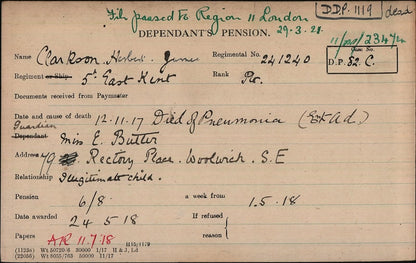 File passed to Region 11 London
29.3.21
D.D.P. 1119
dead
DEPENDANT'S PENSION.
Name Clarkson Herbert James
Regimental No. 241240
D.P. 82.C.
Regiment or Ship 5th East Kent
Rank Pte.
Documents received from Paymaster
Date and cause of death 12.11.17 Died of Pneumonia (Ext Ad.)
Guardian
Dependant Miss E. Butler
Address 49 Rectory Place. Woolwich. S.E
Relationship Illegitimate child.
Pension 6/8 a week from 1.5.18
Date awarded 24 5.18 If refused
Papers AR 11.7.18 reason
(11234) Wt 50720/6 50000 1/17 H & J, Ld
(22056) Wt 5055/763 50000 11/17